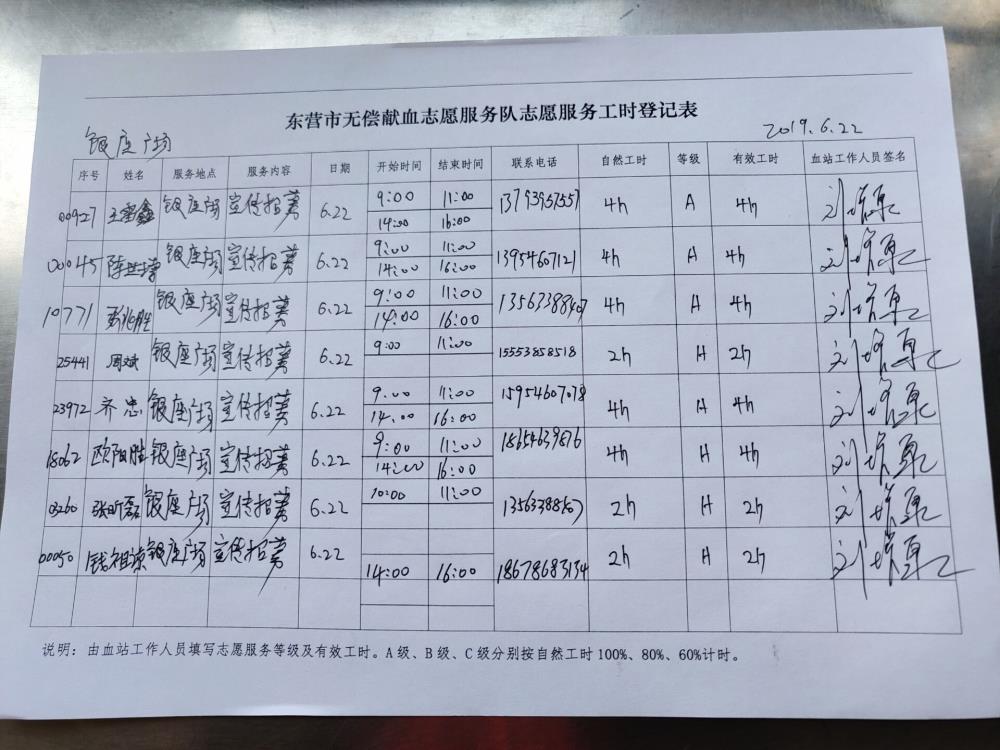 东营市无偿献血志愿服务队志愿服务工时登记表
银座广场 2019.6.22
序号 姓名 服务地点 服务内容 日期 开始时间 结束时间 联系电话 自然工时 等级 有效工时 血站工作人员签名
00927 银座广场 宣传招募 6.22 9:00 11:00 13793957557 4h A 4h
14:00 16:00
00045 银座广场 宣传招募 6.22 9:00 11:00 13954607121 4h A 4h
14:00 16:00
10771 银座广场 宣传招募 6.22 9:00 11:00 13563388407 4h A 4h
14:00 16:00
25441 周斌 银座广场 宣传招募 6.22 9:00 11:00 15553858518 2h A 2h
23972 齐忠 银座广场 宣传招募 6.22 9:00 11:00 15954607078 4h A 4h
14:00 16:00
18062 欧阳胜 银座广场 宣传招募 6.22 9:00 11:00 18654639876 4h A 4h
14:00 16:00
03260 张昕磊 银座广场 宣传招募 6.22 10:00 11:00 2h A 2h
00050 钱祖谅 银座广场 宣传招募 6.22 14:00 16:00 18678683134 2h A 2h
说明：由血站工作人员填写志愿服务等级及有效工时。A级、B级、C级分别按自然工时100%、80%、60%计时。